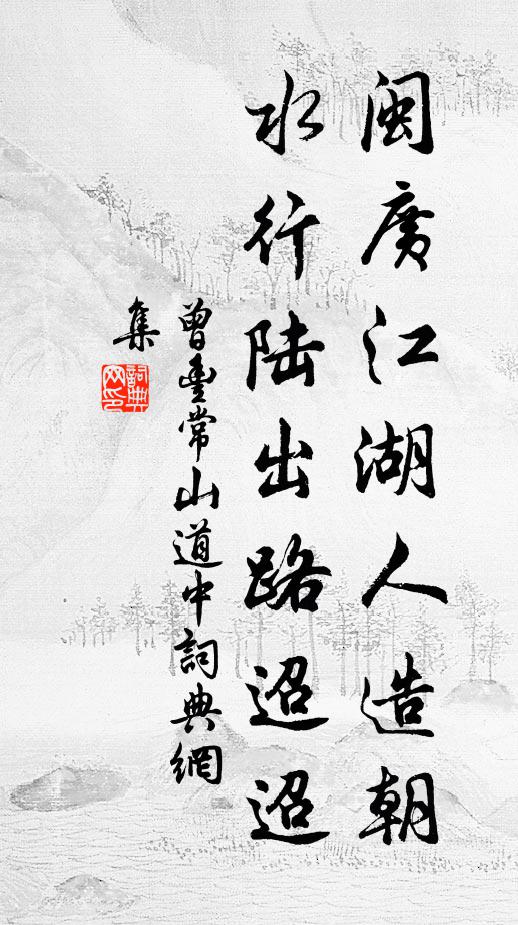 闽廣江湖人造朝
水行陆出路迢迢
曾豊常山道中詞典網
集
詞典網印